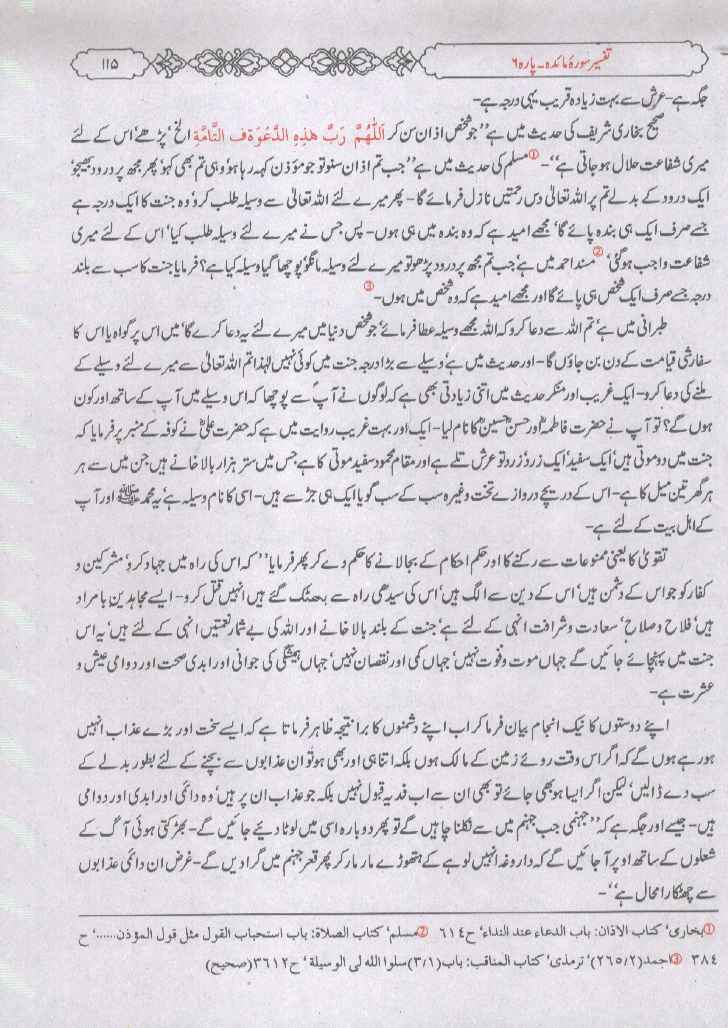 تفسیر سورۂ مائدہ۔ پارہ ۶
۱۱۵
جگہ ہے۔ عرش سے بہت زیادہ قریب یہی درجہ ہے۔
صحیح بخاری شریف کی حدیث میں ہے ”جو شخص اذان سن کر اَللّٰهُمَّ رَبَّ هٰذِهِ الدَّعْوَةِ التَّامَّةِ الخ‘ پڑھے‘ اس کے لئے
میری شفاعت حلال ہو جاتی ہے“۔① مسلم کی حدیث میں ہے ”جب تم اذان سنو تو جو مؤذن کہہ رہا ہو‘ وہی تم بھی کہو‘ پھر مجھ پر درود بھیجو‘
ایک درود کے بدلے تم پر اللہ تعالیٰ دس رحمتیں نازل فرمائے گا۔ پھر میرے لئے اللہ تعالیٰ سے وسیلہ طلب کرو‘ وہ جنت کا ایک درجہ ہے
جسے صرف ایک ہی بندہ پائے گا‘ مجھے امید ہے کہ وہ بندہ میں ہی ہوں۔ پس جس نے میرے لئے وسیلہ طلب کیا‘ اس کے لئے میری
شفاعت واجب ہو گئی‘②مسند احمد میں ہے‘ جب تم مجھ پر درود پڑھو تو میرے لئے وسیلہ مانگو‘ پوچھا گیا وسیلہ کیا ہے؟ فرمایا جنت کا سب سے بلند
درجہ جسے صرف ایک شخص ہی پائے گا اور مجھے امید ہے کہ وہ شخص میں ہوں۔③
طبرانی میں ہے‘ تم اللہ سے دعا کرو کہ اللہ مجھے وسیلہ عطا فرمائے‘ جو شخص دنیا میں میرے لئے یہ دعا کرے گا‘ میں اس پر گواہ یا اس کا
سفارشی قیامت کے دن بن جاؤں گا۔ اور حدیث میں ہے‘ وسیلے سے بڑا درجہ جنت میں کوئی نہیں لہٰذا تم اللہ تعالیٰ سے میرے لئے وسیلے کے
ملنے کی دعا کرو۔ ایک غریب اور منکر حدیث میں اتنی زیادتی بھی ہے کہ لوگوں نے آپ سے پوچھا کہ اس وسیلے میں آپ کے ساتھ اور کون
ہوں گے؟ تو آپ نے حضرت فاطمہؓ اور حسنؓ حسینؓ کا نام لیا۔ ایک اور بہت غریب روایت میں ہے کہ حضرت علیؓ نے کوفہ کے منبر پر فرمایا کہ
جنت میں دو موتی ہیں‘ ایک سفید‘ ایک زرد‘ زرد تو عرش تلے ہے اور مقام محمود سفید موتی کا ہے جس میں ستر ہزار بالا خانے ہیں جن میں سے ہر
ہر گھر تین میل کا ہے۔ اس کے دریچے دروازے تخت وغیرہ سب کے سب گویا ایک ہی جڑ سے ہیں۔ اسی کا نام وسیلہ ہے‘ یہ محمد ﷺ اور آپ
کے اہل بیت کے لئے ہے۔
تقویٰ کا یعنی ممنوعات سے رکنے کا اور حکم احکام کے بجا لانے کا حکم دے کر پھر فرمایا ”کہ اس کی راہ میں جہاد کرو‘ مشرکین و
کفار کو جو اس کے دشمن ہیں‘ اس کے دین سے الگ ہیں‘ اس کی سیدھی راہ سے بھٹک گئے ہیں‘ انہیں قتل کرو۔ ایسے مجاہدین با مراد
ہیں‘ فلاح و صلاح‘ سعادت و شرافت انہی کے لئے ہے‘ جنت کے بلند بالا خانے اور اللہ کی بے شمار نعمتیں انہی کے لئے ہیں‘ یہ اس
جنت میں پہنچائے جائیں گے جہاں موت و فوت نہیں‘ جہاں کمی اور نقصان نہیں‘ جہاں ہمیشگی کی جوانی اور ابدی صحت اور دوامی عیش و
عشرت ہے۔
اپنے دوستوں کا نیک انجام بیان فرما کر اب اپنے دشمنوں کا برا نتیجہ ظاہر فرماتا ہے کہ ایسے سخت اور بڑے عذاب انہیں
ہو رہے ہوں گے کہ اگر اس وقت روئے زمین کے مالک ہوں بلکہ اتنا ہی اور بھی ہو تو ان عذابوں سے بچنے کے لئے بطور بدلے کے
سب دے ڈالیں‘ لیکن اگر ایسا ہو بھی جائے تو بھی ان سے اب فدیہ قبول نہیں بلکہ جو عذاب ان پر ہیں‘ وہ دائمی اور ابدی اور دوامی
ہیں۔ جیسے اور جگہ ہے کہ ”جہنمی جب جہنم میں سے نکلنا چاہیں گے تو پھر دوبارہ اسی میں لوٹا دیئے جائیں گے۔ بھڑکتی ہوئی آگ کے
شعلوں کے ساتھ اوپر آ جائیں گے کہ داروغے انہیں لوہے کے ہتھوڑے مار مار کر پھر قعر جہنم میں گرا دیں گے۔ غرض ان دائمی عذابوں
سے چھٹکارا محال ہے“۔
①بخاری‘ کتاب الاذان: باب الدعاء عند النداء‘ ح ۶۱۴ ②مسلم‘ کتاب الصلاة: باب استحباب القول مثل قول المؤذن......‘ ح
۳۸۴ ③احمد(۲/۲۶۵)‘ ترمذی‘ کتاب المناقب: باب(۳/۱)سلوا الله لی الوسیلة ‘ ح ۳۶۱۲(صحیح)